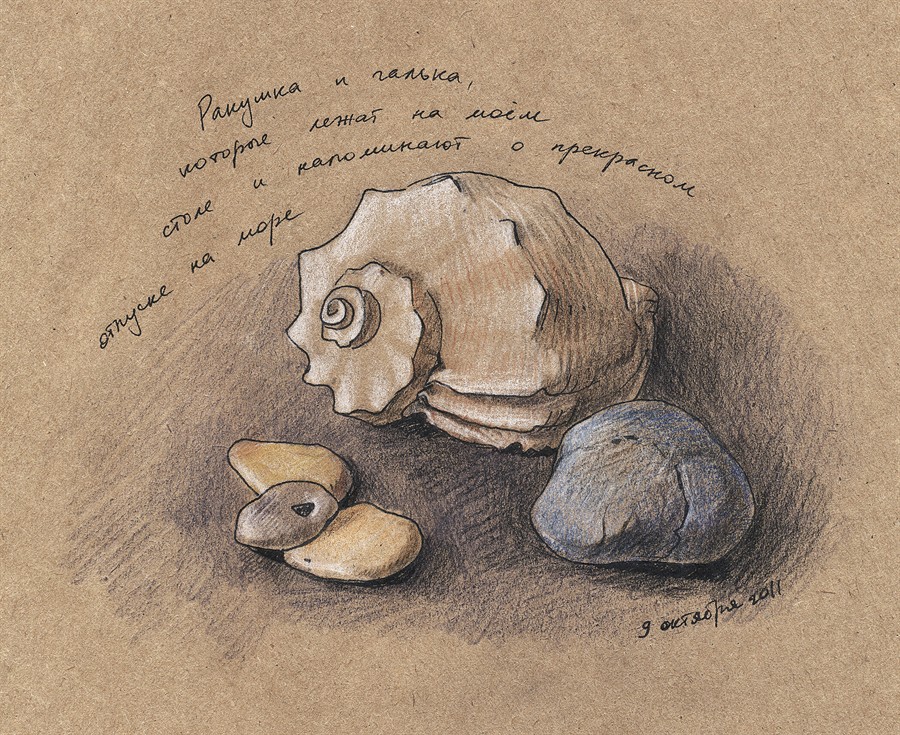 Ракушка и галька,
которые лежат на моём
столе и напоминают о прекрасном
отпуске на море
9 октября 2011